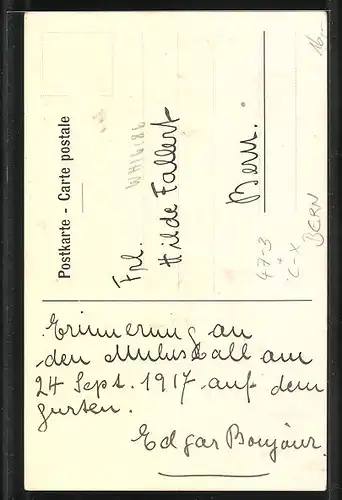 Postkarte - Carte postale
Frl.
Hilde Fallert
Bern.
WH16186
16,-
47-3
C-X
BERN
Erinnerung an
den Mulusball am
24 Sept. 1917 auf dem
gurten.
Edgar Bonjour